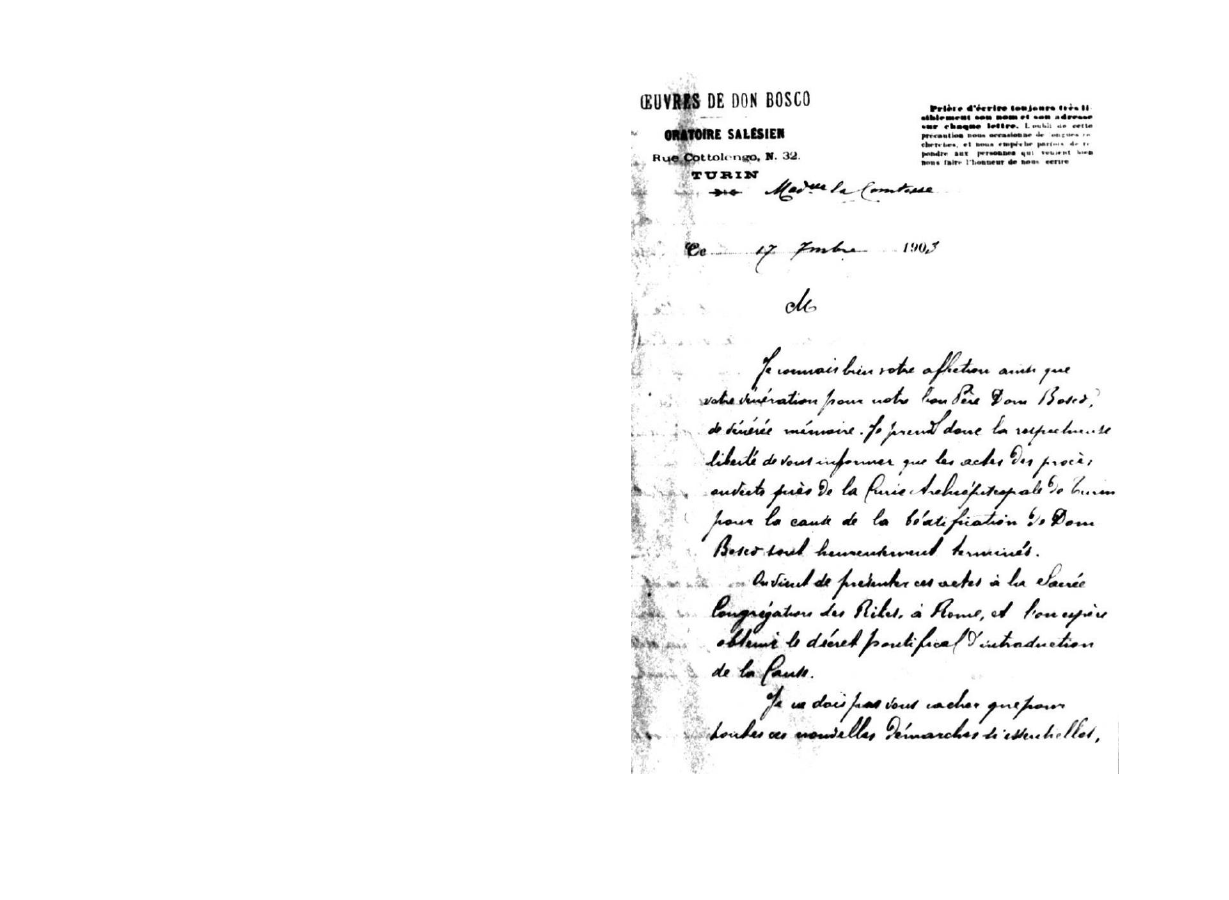 ŒUVRES DE DON BOSCO
ORATOIRE SALÉSIEN
Rue Cottolengo, N. 32.
TURIN
Prière d'écrire toujours très li-
siblement son nom et son adresse
sur chaque lettre. L'oubli de cette
précaution nous occasionne de longues re-
cherches, et nous empêche parfois de ré-
pondre aux personnes qui veulent bien
nous faire l'honneur de nous écrire
Mad.me la Comtesse
Ce 17 7mbre 1903
M
Je connais bien votre affection ainsi que
votre vénération pour notre bon Père Dom Bosco,
de vénérée mémoire. Je prends donc la respectueuse
liberté de vous informer que les actes des procès
ouverts près de la Curie Archiépiscopale de Turin
pour la cause de la béatification de Dom
Bosco sont heureusement terminés.
On vient de présenter ces actes à la Sacrée
Congrégation des Rites, à Rome, et l'on espère
obtenir le décret pontifical d'introduction
de la Cause.
Je ne dois pas vous cacher que pour
toutes ces nouvelles démarches si essentielles,